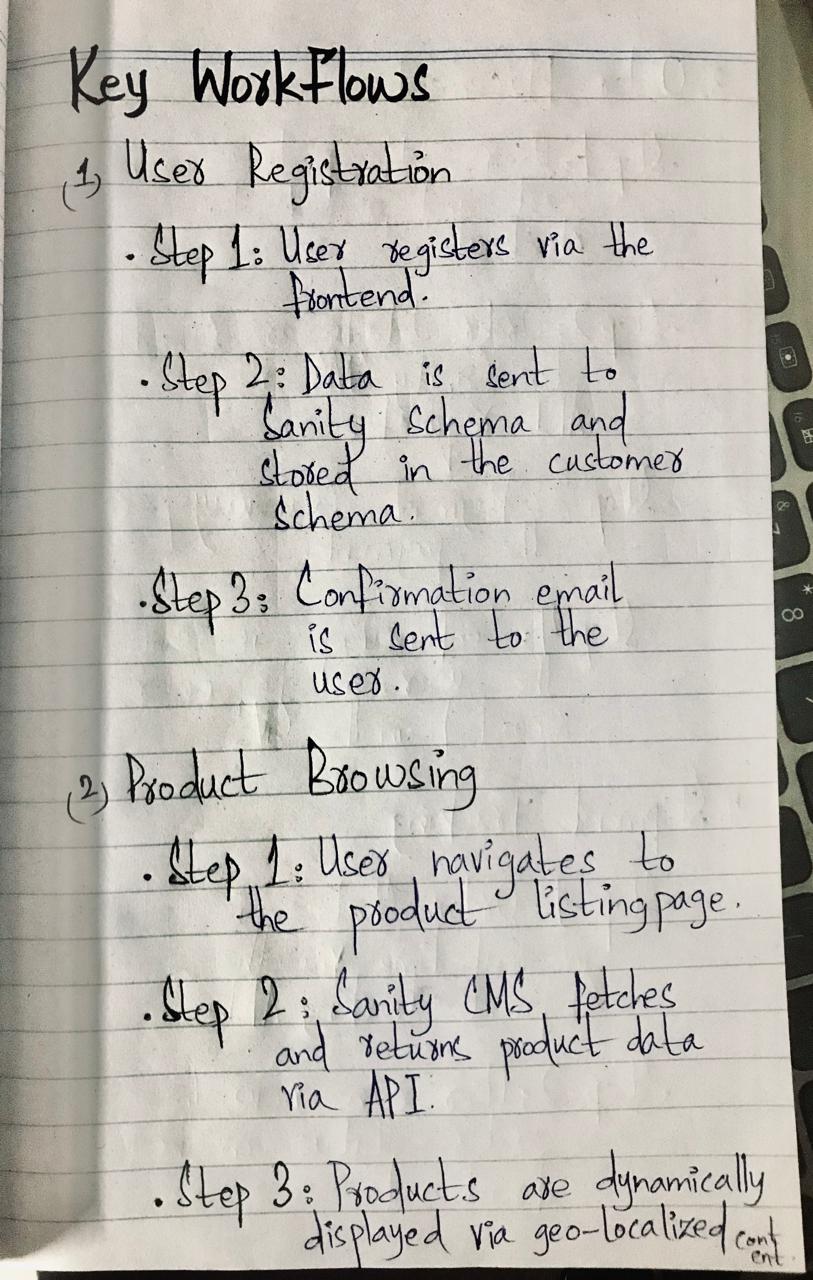 Key Workflows
(1) User Registration
• Step 1: User registers via the
frontend.
• Step 2: Data is sent to
Sanity Schema and
stored in the customer
schema.
• Step 3: Confirmation email
is sent to the
user.
(2) Product Browsing
• Step 1: User navigates to
the product listing page.
• Step 2: Sanity CMS fetches
and returns product data
via API.
• Step 3: Products are dynamically
displayed via geo-localized content